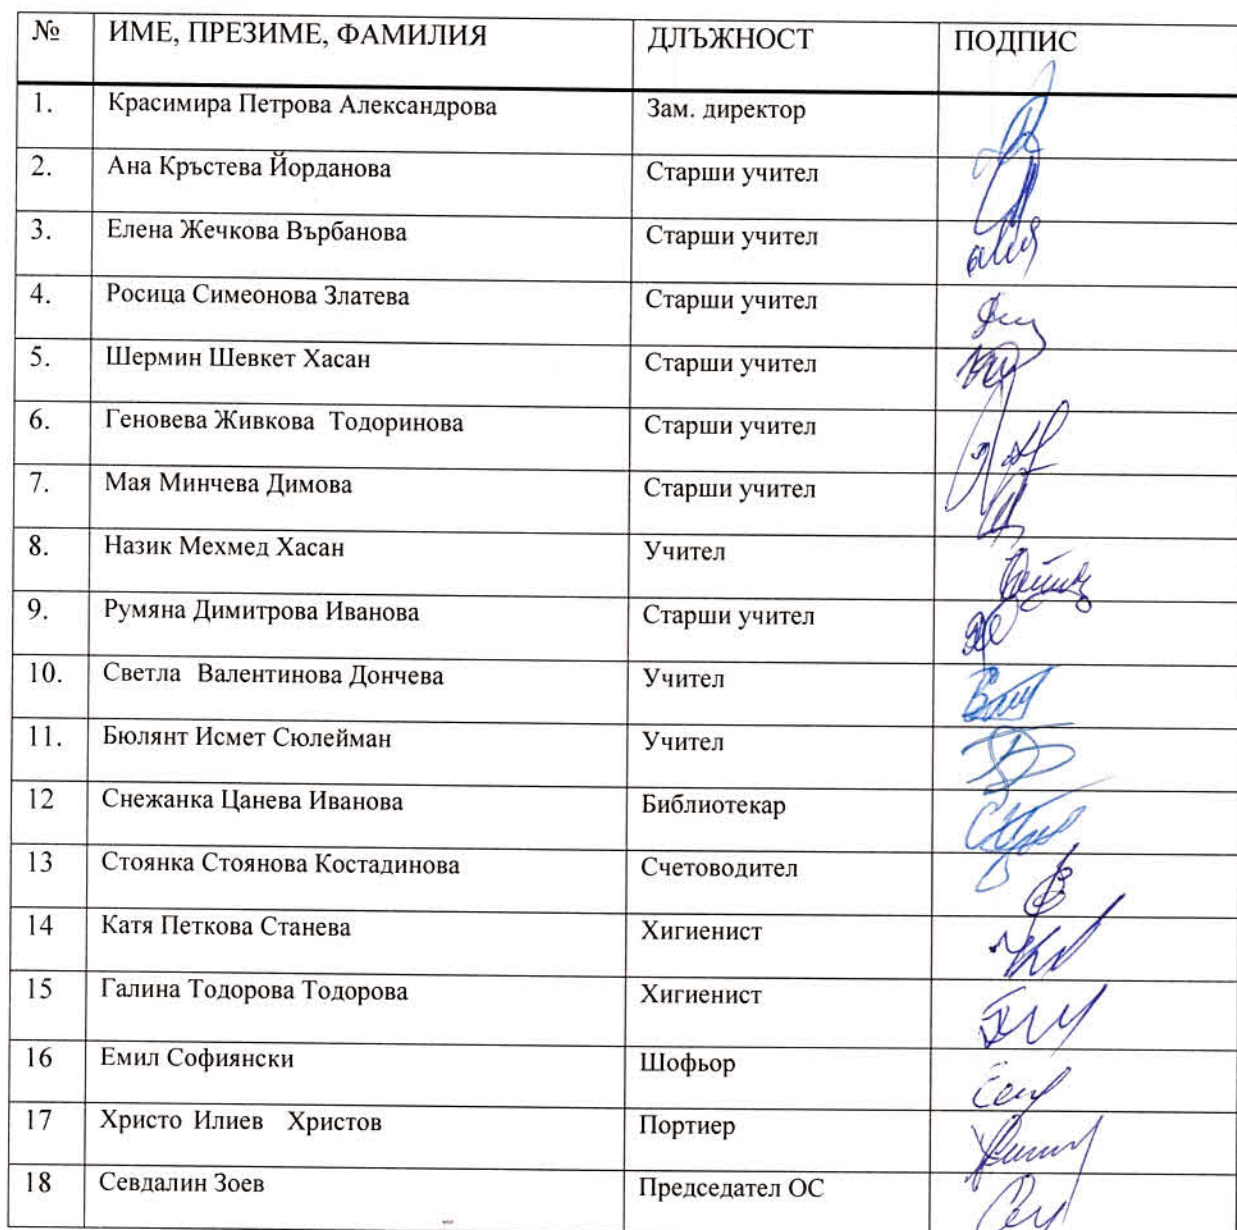 № ИМЕ, ПРЕЗИМЕ, ФАМИЛИЯ ДЛЪЖНОСТ ПОДПИС
1. Красимира Петрова Александрова Зам. директор
2. Ана Кръстева Йорданова Старши учител
3. Елена Жечкова Върбанова Старши учител
4. Росица Симеонова Златева Старши учител
5. Шермин Шевкет Хасан Старши учител
6. Геновева Живкова Тодоринова Старши учител
7. Мая Минчева Димова Старши учител
8. Назик Мехмед Хасан Учител
9. Румяна Димитрова Иванова Старши учител
10. Светла Валентинова Дончева Учител
11. Бюлянт Исмет Сюлейман Учител
12 Снежанка Цанева Иванова Библиотекар
13 Стоянка Стоянова Костадинова Счетоводител
14 Катя Петкова Станева Хигиенист
15 Галина Тодорова Тодорова Хигиенист
16 Емил Софиянски Шофьор
17 Христо Илиев Христов Портиер
18 Севдалин Зоев Председател ОС